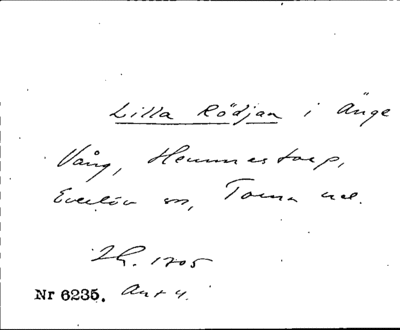 Lilla Rödjan i Änge
Vång, Hemmestorp,
Everlöv sn, Torna hd.
Lh. 1705
Nr 6235. Ant 4.